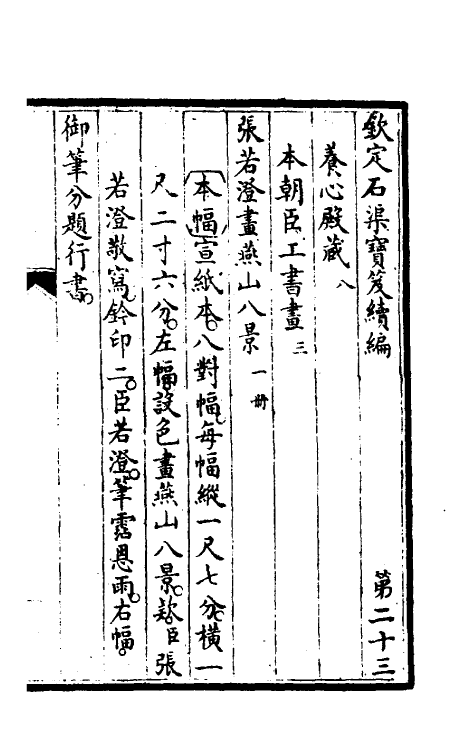 欽定石渠寶笈續編 第二十三
養心殿藏 八
本朝臣工書畫 三
張若澄畫燕山八景 一冊
本幅宣紙本。八對幅。每幅縱一尺七分。橫一
尺二寸六分。左幅設色畫燕山八景。款。臣張
若澄敬寫。鈐印二。臣若澄。筆霑恩雨。右幅。
御筆分題行書。